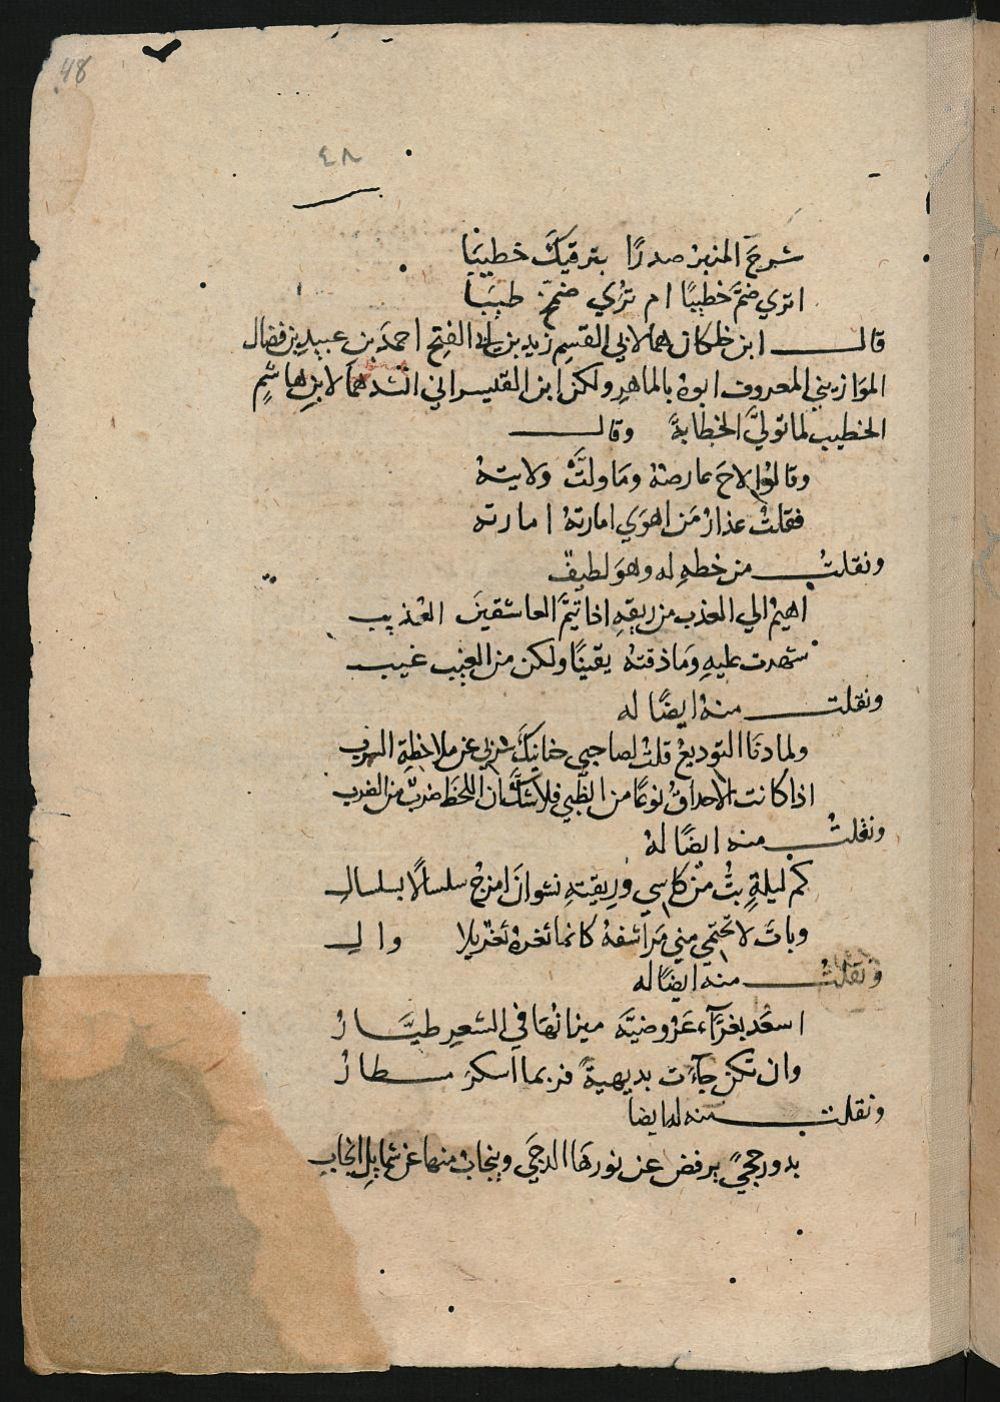 48
٤٨
شرح المنبر صدرًا بترقيك خطيبا
اترى ضم خطيبًا ام ترى ضمخ طيبا
قال ابن خلكان هما لابي القسم زيد بن ابي الفتح احمد بن عبيد بن فضال
الموازيني المعروف ابوه بالماهر ولكن ابن القيسراني انشدهما لابن هاشم
الخطيب لما تولى الخطابة وقال
وقالوا لاح عارضه وما ولت ولايته
فقلت عذار من اهوى امارته امارته
ونقلت من خطه له وهو لطيف
اهيم الى العذب من ريقه اذا تيم العاشقين العذيب
شهدت عليه وما ذقته يقينًا ولكن من الغيب غيب
ونقلت منه ايضًا له
ولما دنا التوديع قلت لصاحبي حنانيك سر بي عن ملاحظة السرب
اذا كانت الاحداق نوعًا من الظبي فلا شك ان اللحظ ضرب من الضرب
ونقلت منه ايضًا له
كم ليلةٍ بت من كاسي وريقته نشوان امزج سلسالًا بسلسال
وبات لا تحتمي مني مراشفه كانما ثغره ثغر بلا وال
ونقلت منه ايضًا له
اسعد بغراء عروضية ميزانها في الشعر طيار
وان تكن جاءت بديهية فربما اسكر مسطار
ونقلت منه له ايضا
بدور حجى يرفض عن نورها الدجى وينجاب منها عن شمايل انجاب